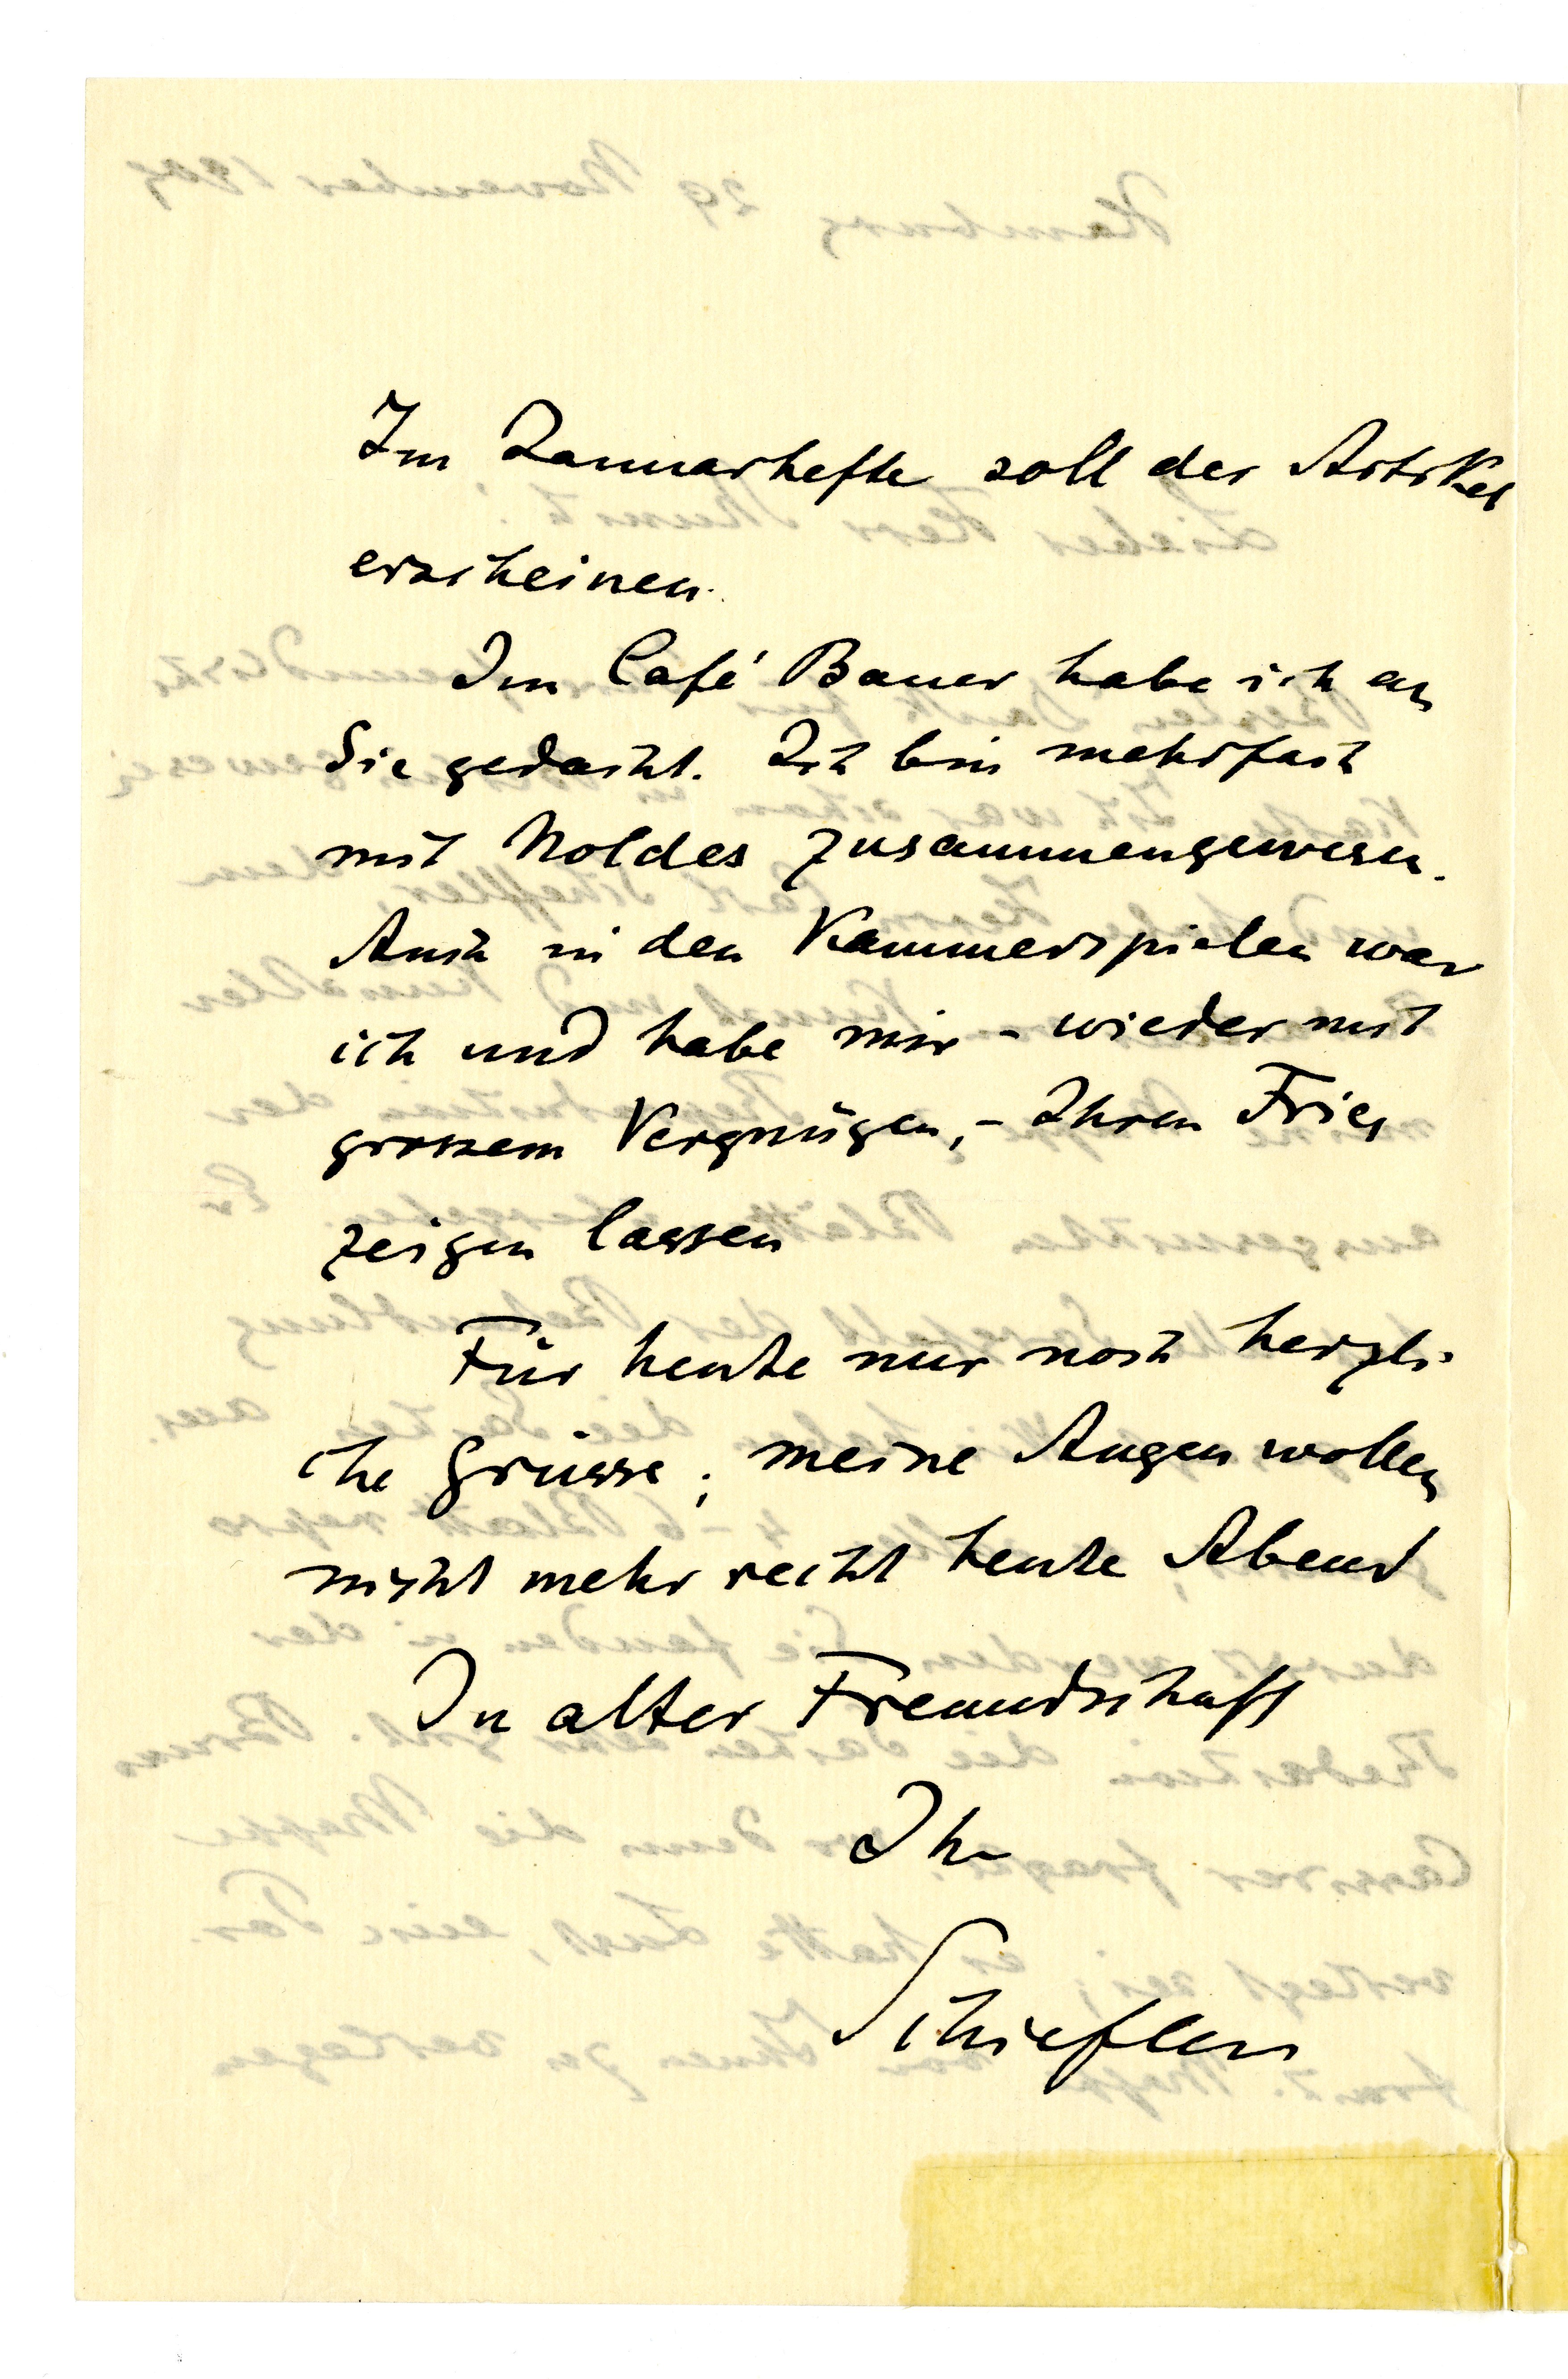 Im Januarhefte soll der Artikel
erscheinen.
Im Café Bauer habe ich an
Sie gedacht. Ich bin mehrfach
mit Noldes zusammengewesen.
Auch in den Kammerspielen war
ich und habe mir - wieder mit
grossem Vergnügen, - Ihren Fries
zeigen lassen
Für heute nur noch herzli-
che Grüsse; meine Augen wollen
nicht mehr recht heute Abend
In alter Freundschaft
Ihr
Schiefler